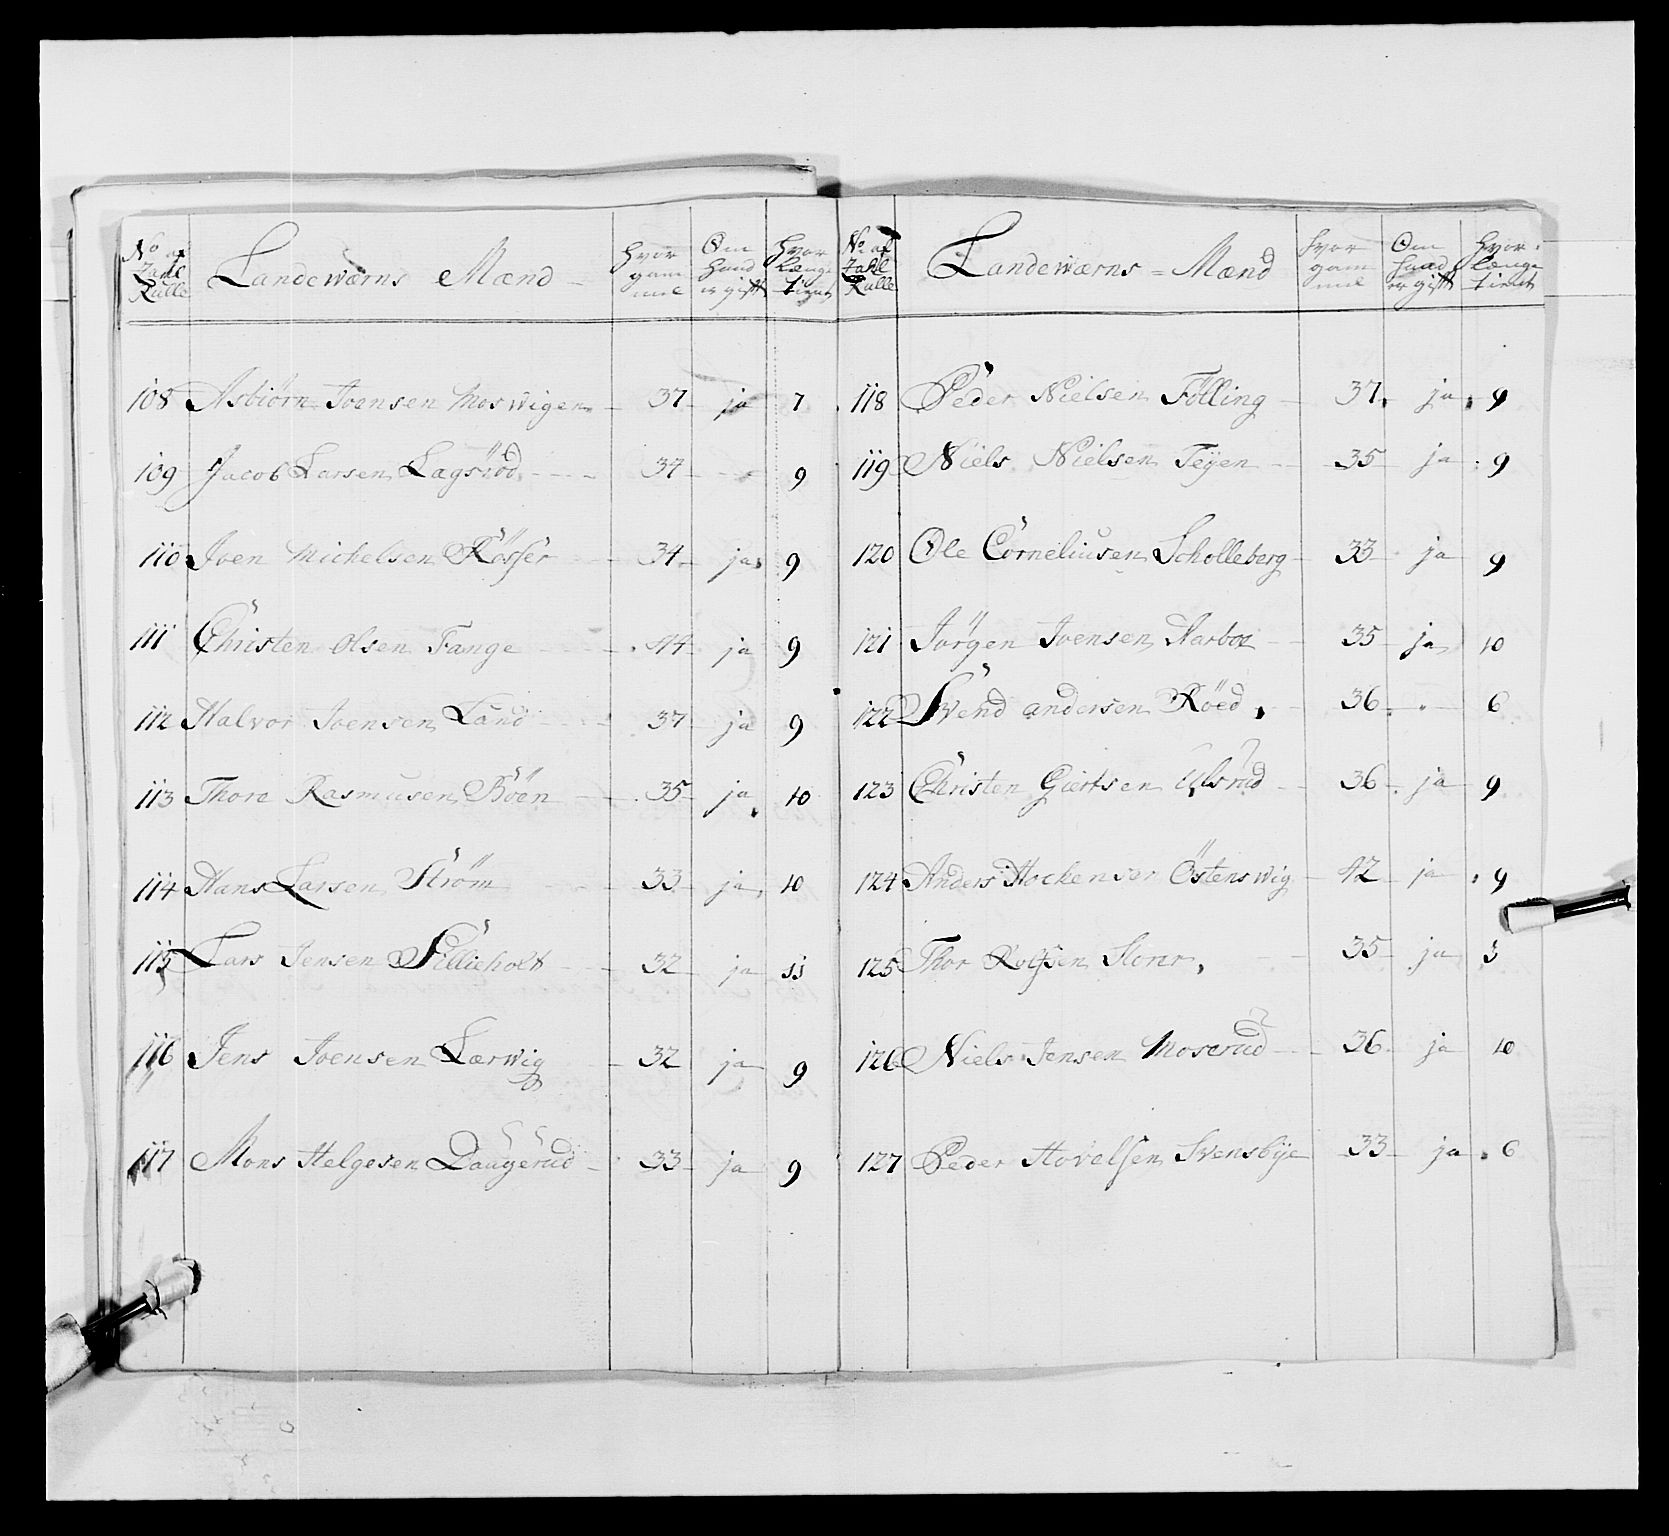 No af Zahl Rulle | Landewærns Mænd | Hvor gam mel | Om hand er gift | Hvor længe tient
108 Asbiørn Joensen Moswigen 37 ja 7
109 Jacob Larsen Lagsrød 37 - 9
110 Joen Michelsen Røsser 34 ja 9
111 Christen Olsen Fange 44 ja 9
112 Halvor Joensen Land 37 ja 9
113 Thore Rasmusen Böen 35 ja 10
114 Hans Larsen Ström 33 ja 10
115 Lars Jensen Sillieholt 32 ja 11
116 Jens Joensen Lærwig 32 ja 9
117 Mons Helgesen Daugerud 33 ja 9
No af Zahl Rulle | Landewærns = Mænd | Hvor gam mel | Om hand er gift | Hvor længe tient
118 Peder Nielsen Fölling 37 ja 9
119 Niels Nielsen Teÿen 35 ja 9
120 Ole Corneliusen Scholleberg 33 ja 9
121 Jörgen Joensen Narboe 35 ja 10
122 Svend andersen Röed 36 - 6
123 Christen Giertsen Ulsrud 36 ja 9
124 Anders Hockensen Östenswig 42 ja 9
125 Thor Rolfsen 35 ja 5
126 Niels Jensen Moserud 36 ja 10
127 Peder Hovelsen Svensbÿe 33 ja 6